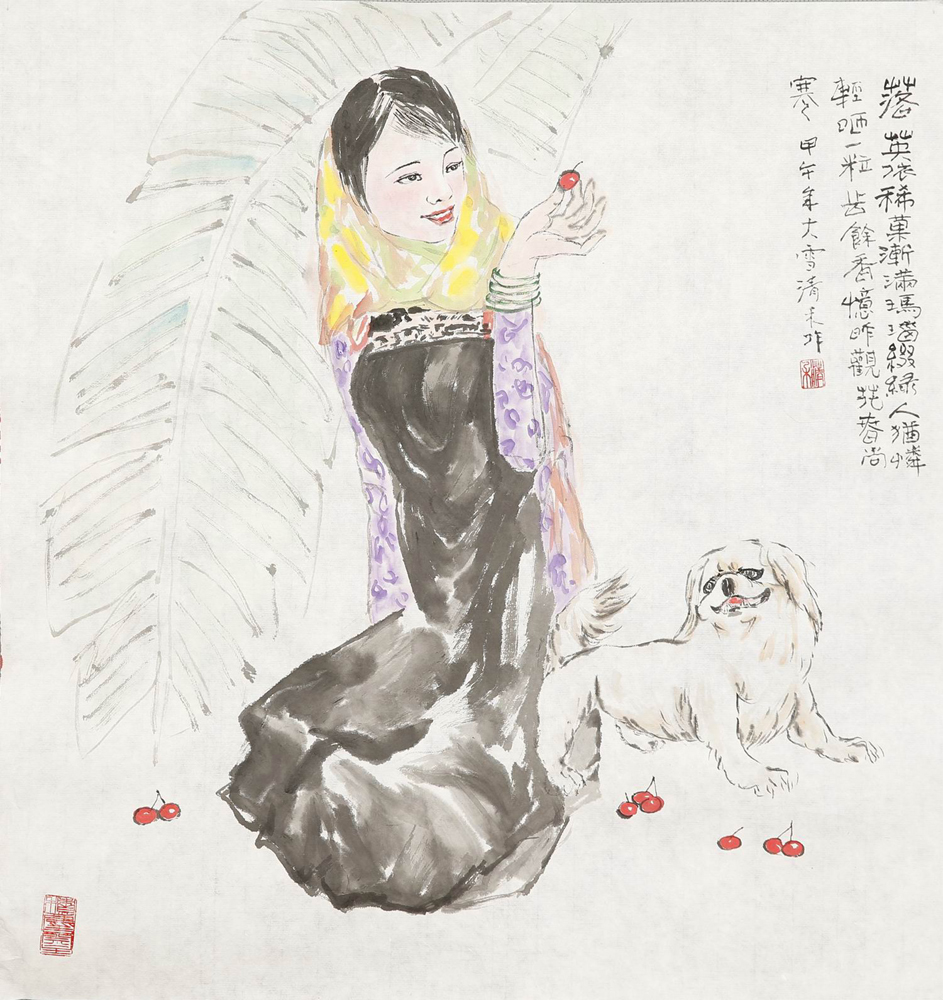 落英依稀菓漸满瑪瑙綴緑人猶憐
輕咂一粒齿餘香憶昨觀花春尚
寒 甲午年大雪清禾作